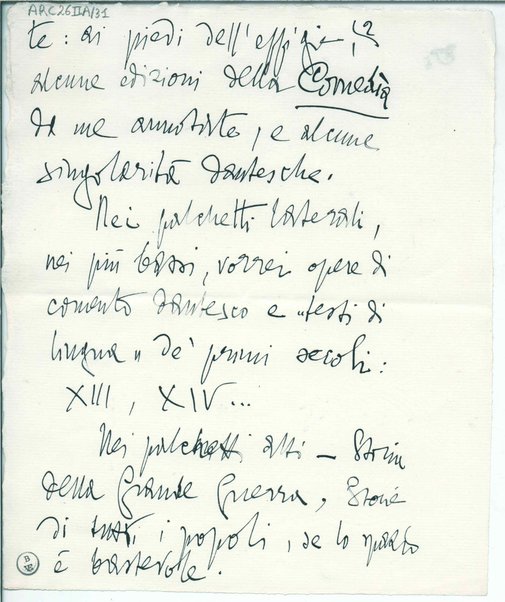 ARC26IIA/31
2
te: ai piedi dell'effigie,
alcune edizioni della Comedia
da me annotate, e alcune
singolarità dantesche.
Nei palchetti laterali,
nei più bassi, vorrei opere di
comento dantesco e "testi di
lingua" de' primi secoli:
XIII, XIV...
Nei palchetti alti — Storia
della Grande Guerra, Storie
di tutti i popoli, se lo spazio
è bastevole.